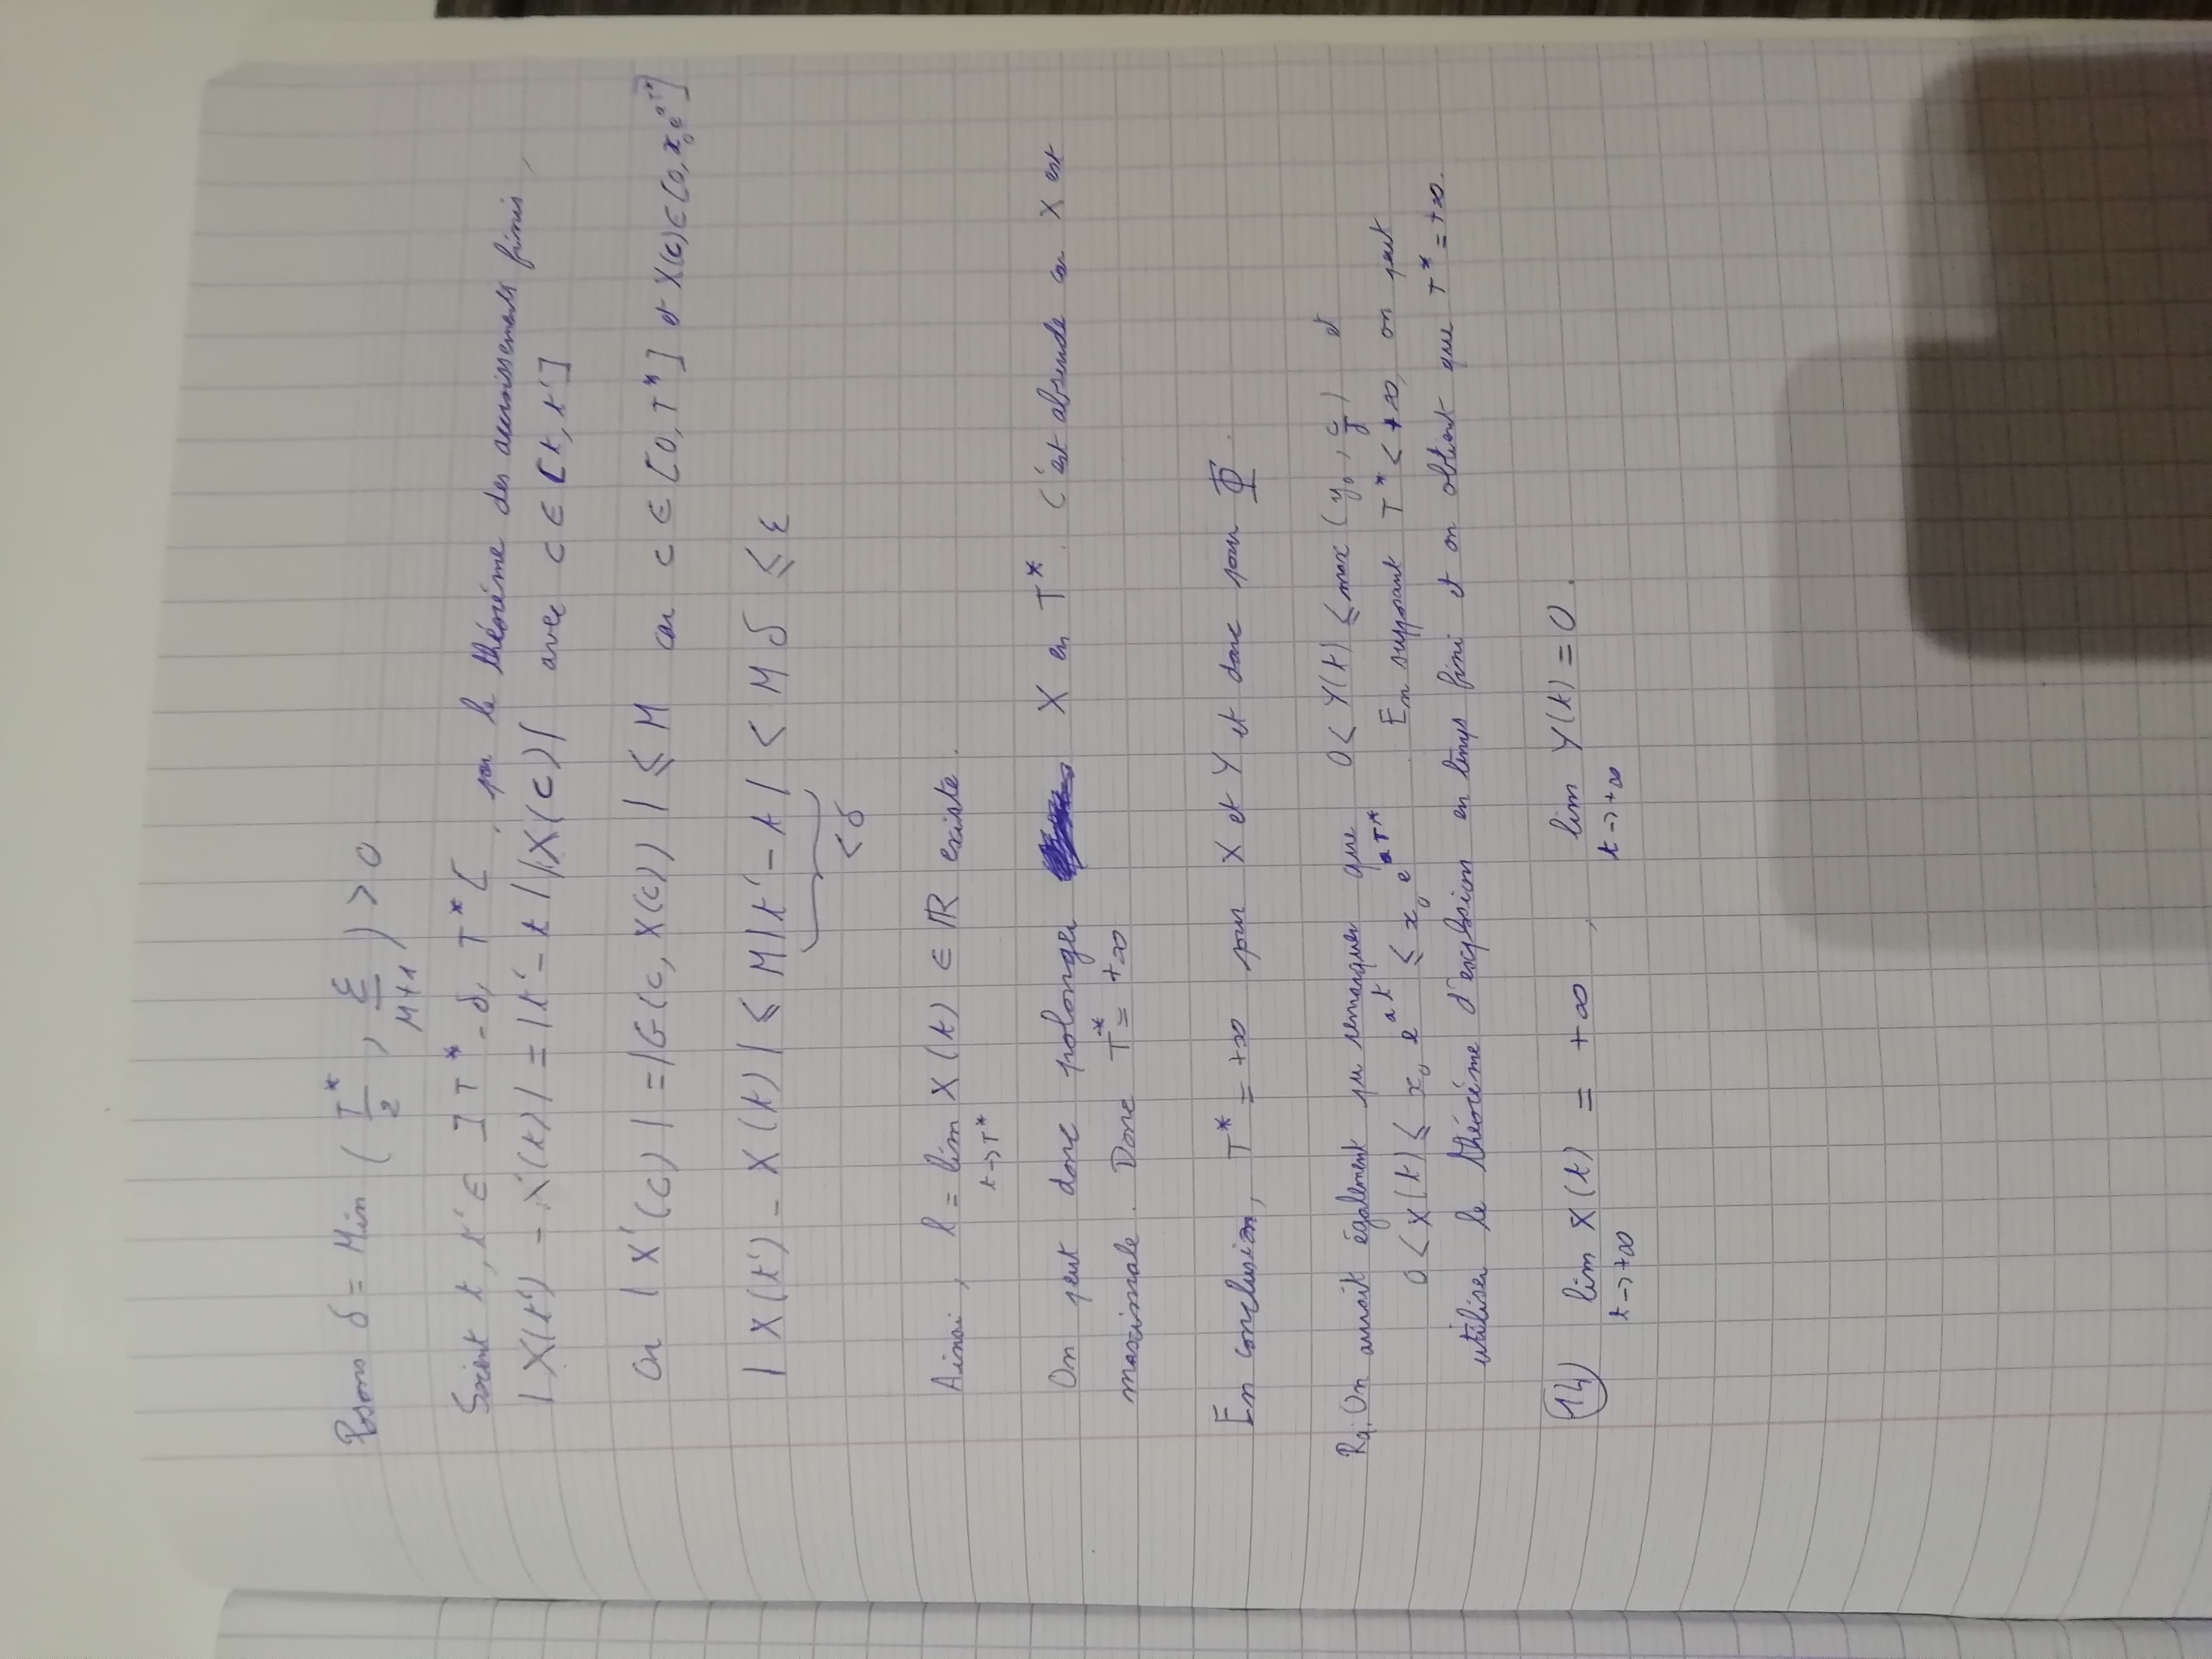 Posons δ = Min ( T*/2 , ε/(M+1) ) > 0
Soient t, t' ∈ ] T* - δ, T* [ , par le théorème des accroissements finis,
| X(t') - X(t) | = | t' - t | |X(c)| avec c ∈ [t, t']
Or | X'(c) | = |G(c, X(c)) | ≤ M car c ∈ [0, T*] et X(c) ∈ [0, x₀e^{aT*}]
| X(t') - X(t) | ≤ M | t' - t | < M δ ≤ ε
< δ
Ainsi, l = lim X(t) ∈ ℝ existe.
t→T*
On peut donc prolonger X en T*. C'est absurde car X est
maximale. Donc T* = +∞
En conclusion, T* = +∞ pour X et Y et donc pour Φ.
Rq: On aurait également pu remarquer que 0 < Y(t) ≤ max (y₀, c/d) et
0 < X(t) ≤ x₀ e^{at} ≤ x₀ e^{aT*} En supposant T* < +∞, on peut
utiliser le théorème d'explosion en temps fini et on obtient que T* = +∞.
14) lim X(t) = +∞ , lim Y(t) = 0.
t→+∞ t→+∞